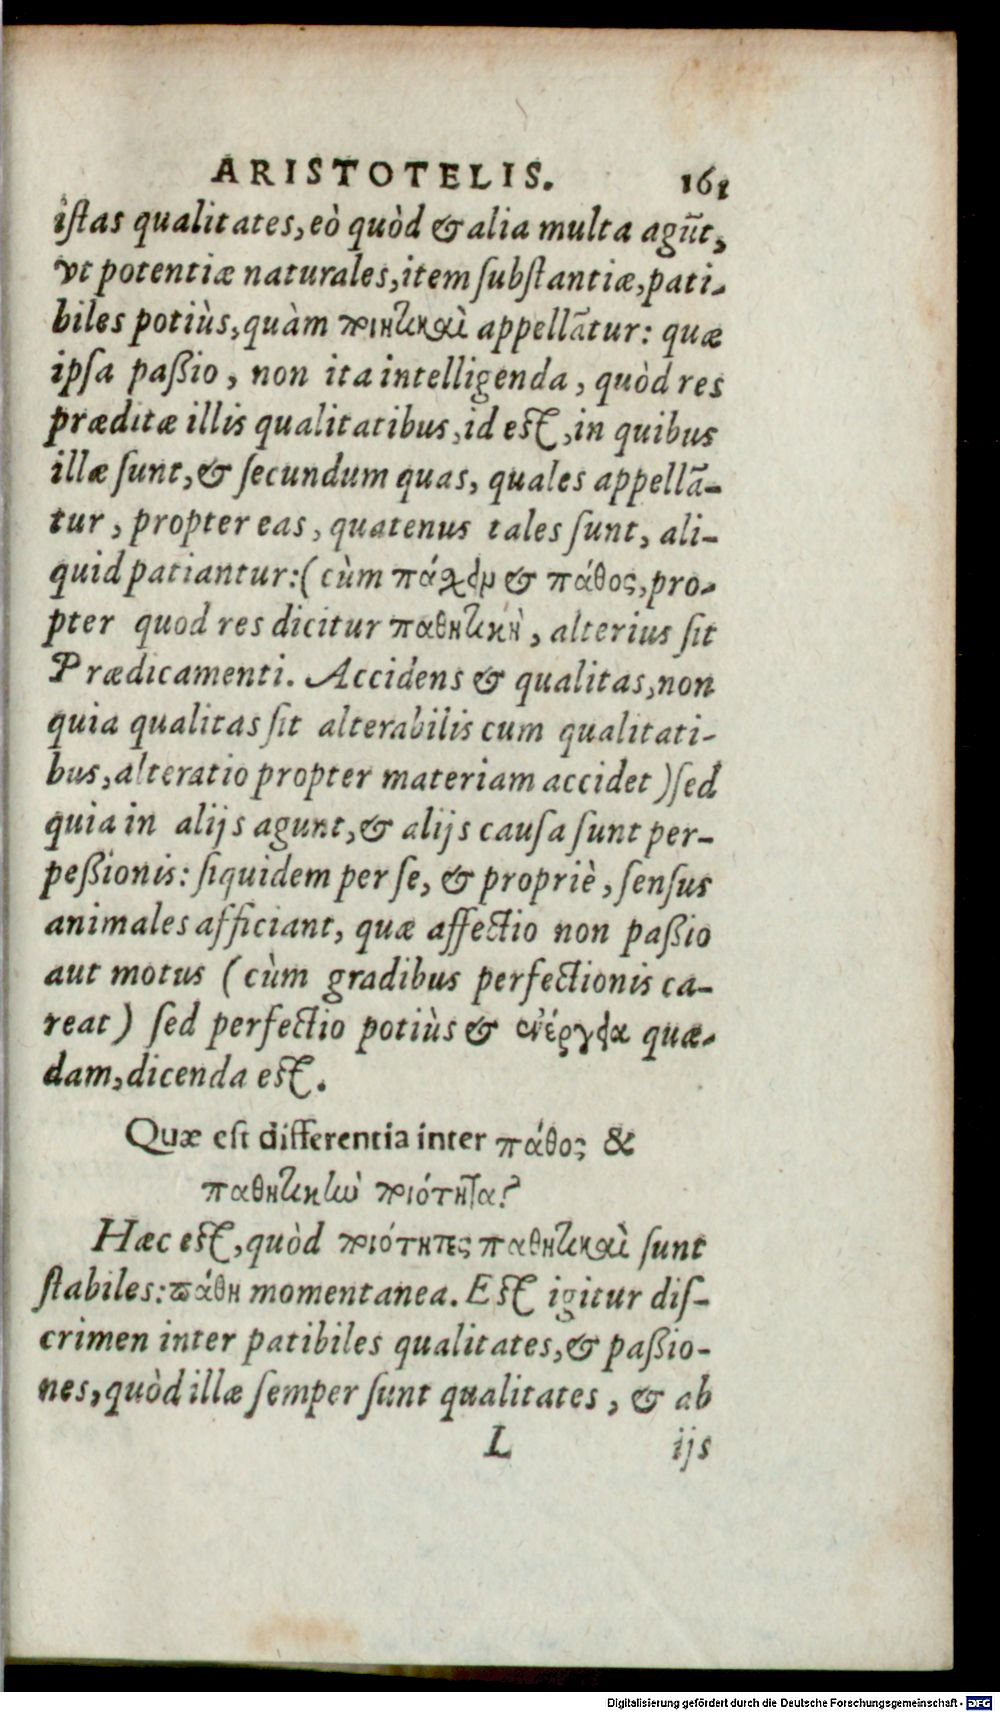 ARISTOTELIS. 161
istas qualitates, eò quòd & alia multa agũt,
vt potentiæ naturales, item substantiæ, pati-
biles potiùs, quàm ποιητικαὶ appellãtur: quæ
ipsa passio, non ita intelligenda, quòd res
præditæ illis qualitatibus, id est, in quibus
illæ sunt, & secundum quas, quales appellã-
tur, propter eas, quatenus tales sunt, ali-
quid patiantur: (cùm πάχειν & πάθος, pro-
pter quod res dicitur παθητικὴ, alterius sit
Prædicamenti. Accidens & qualitas, non
quia qualitas sit alterabilis cum qualitati-
bus, alteratio propter materiam accidet) sed
quia in alijs agunt, & alijs causa sunt per-
pessionis: siquidem per se, & propriè, sensus
animales afficiant, quæ affectio non passio
aut motus (cùm gradibus perfectionis ca-
reat) sed perfectio potiùs & ἐνέργεια quæ-
dam, dicenda est.
Quæ est differentia inter πάθος &
παθητικὴν ποιότητα?
Hæc est, quòd ποιότητες παθητικαὶ sunt
stabiles: πάθη momentanea. Est igitur dis-
crimen inter patibiles qualitates, & passio-
nes, quòd illæ semper sunt qualitates, & ab
L ijs
Digitalisierung gefördert durch die Deutsche Forschungsgemeinschaft - DFG